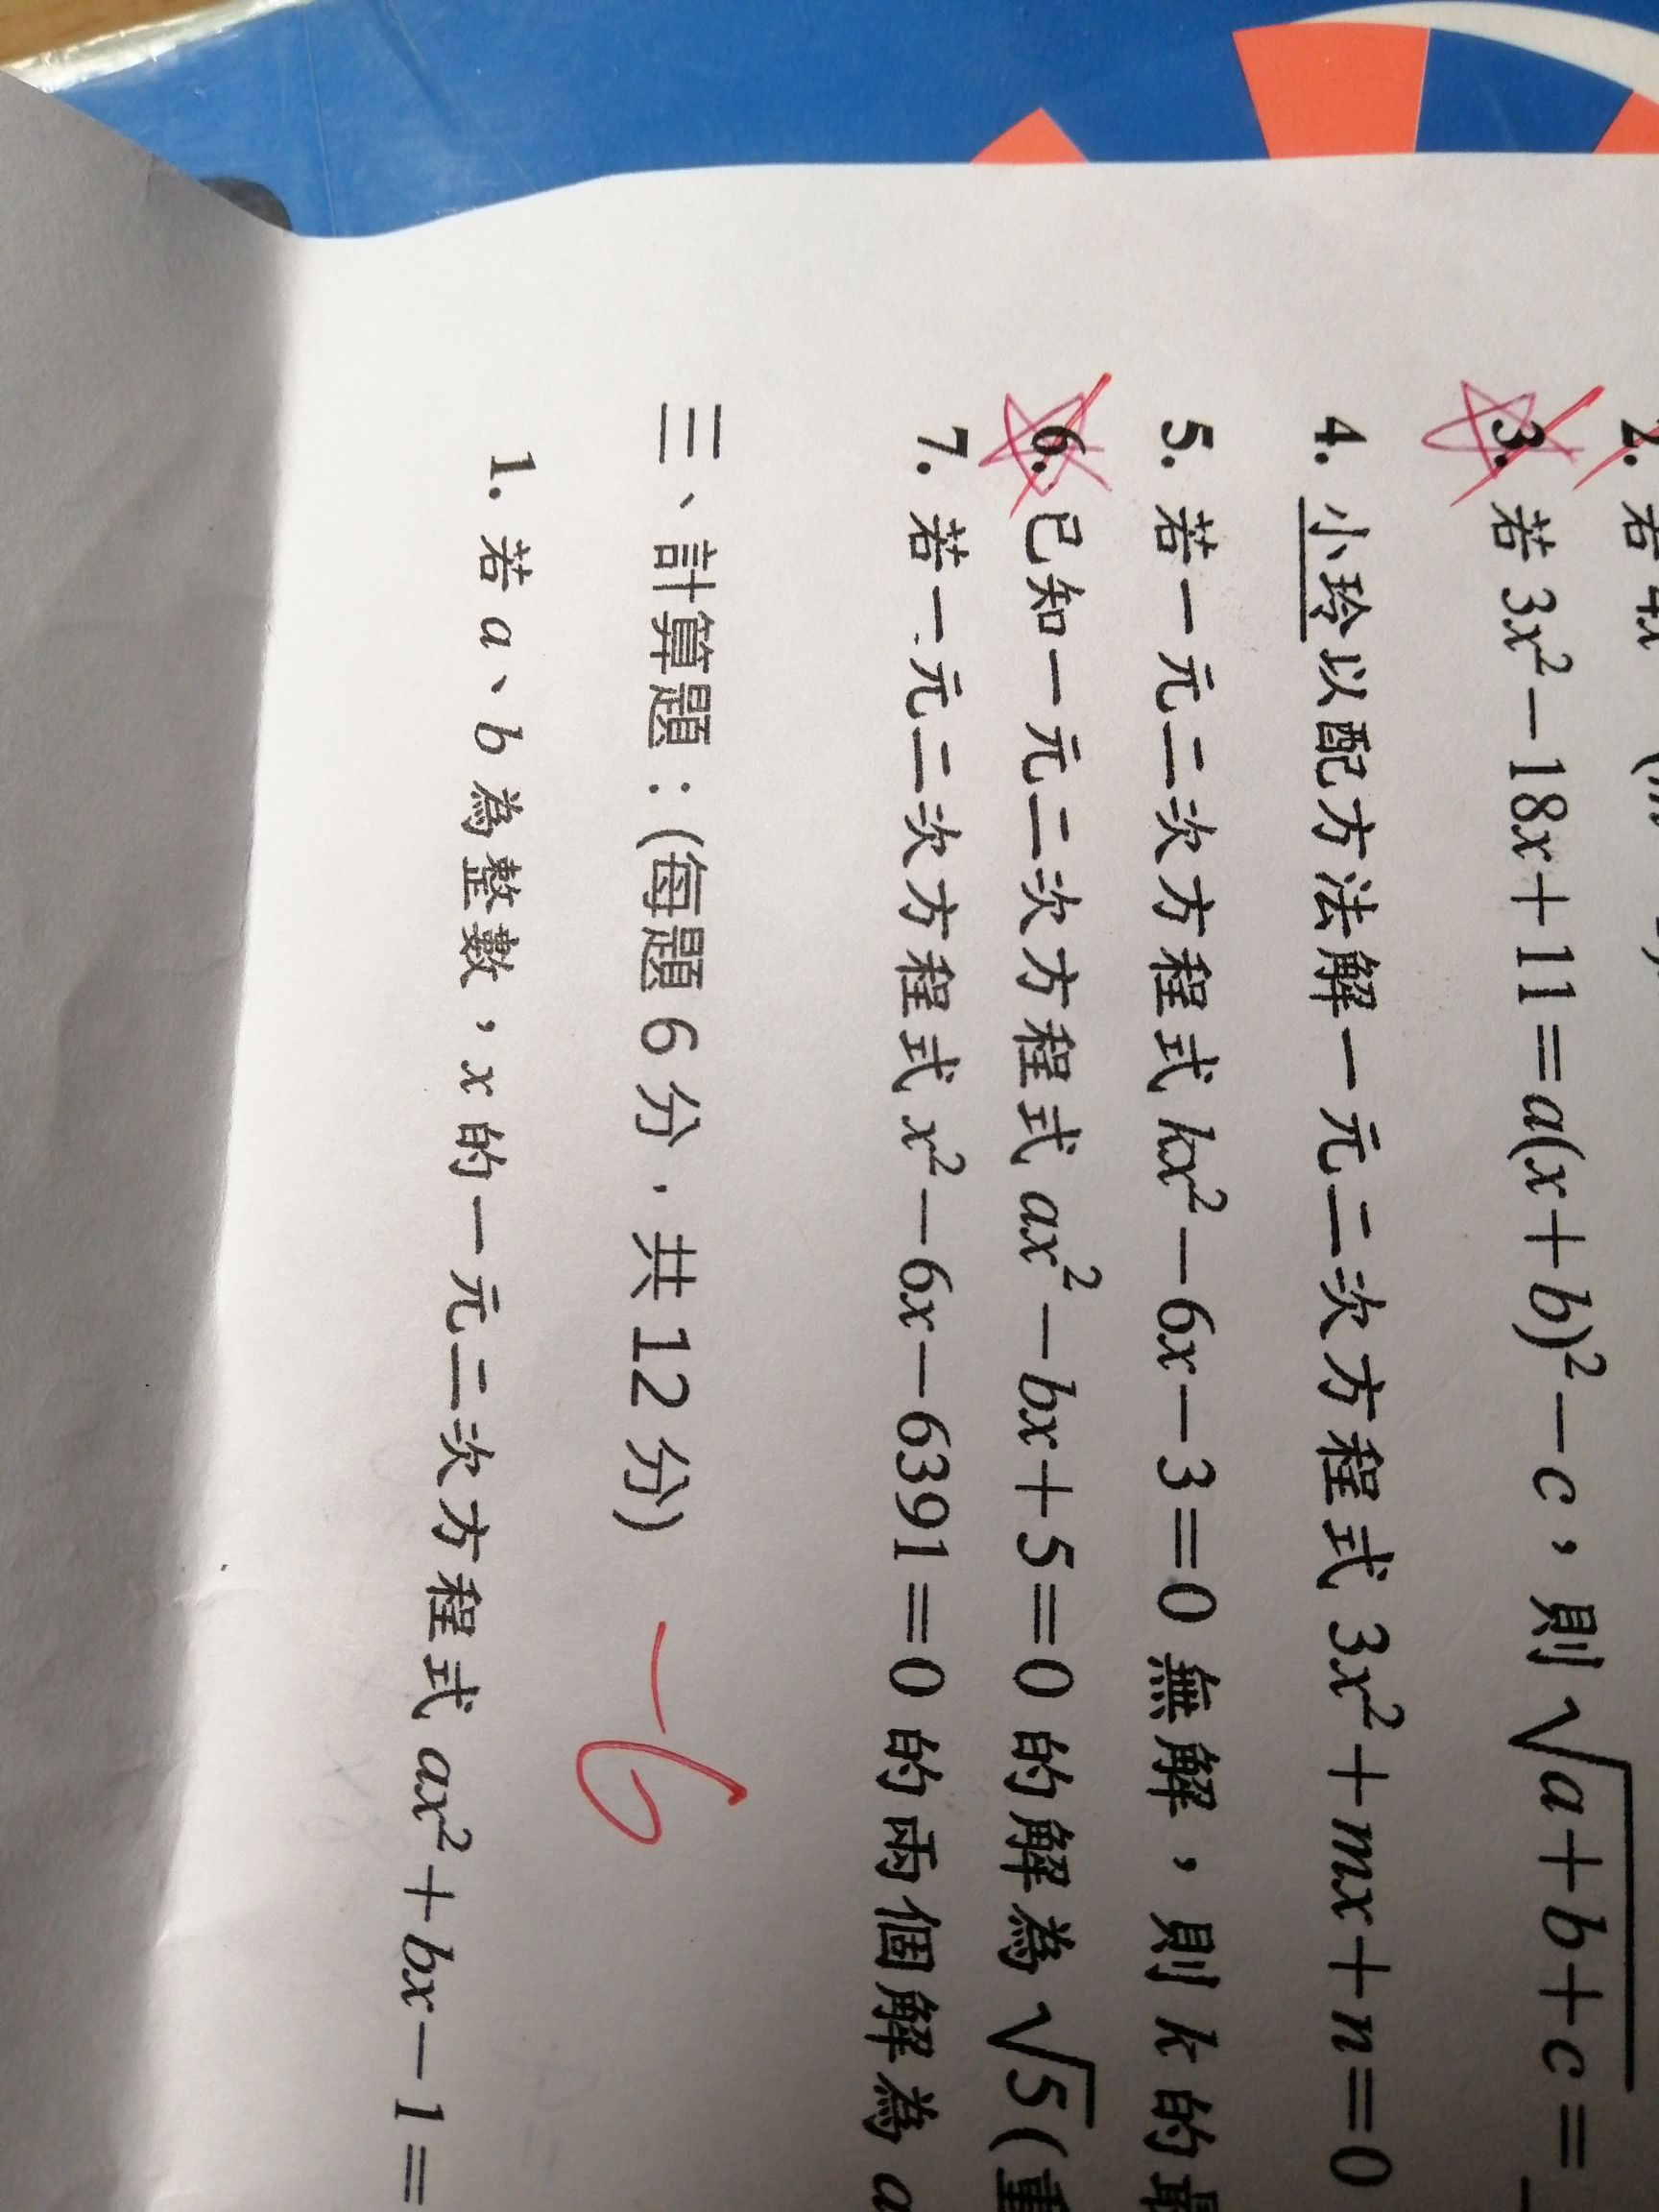 2. 若 4x
3. 若 3x²－18x＋11＝a(x＋b)²－c，則 √(a＋b＋c)＝
4. 小玲以配方法解一元二次方程式 3x²＋mx＋n＝0
5. 若一元二次方程式 kx²－6x－3＝0 無解，則 k 的最
6. 已知一元二次方程式 ax²－bx＋5＝0 的解為 √5 (重
7. 若一元二次方程式 x²－6x－6391＝0 的兩個解為 a
三、計算題：(每題 6 分．共 12 分) －6
1. 若 a、b 為整數，x 的一元二次方程式 ax²＋bx－1＝